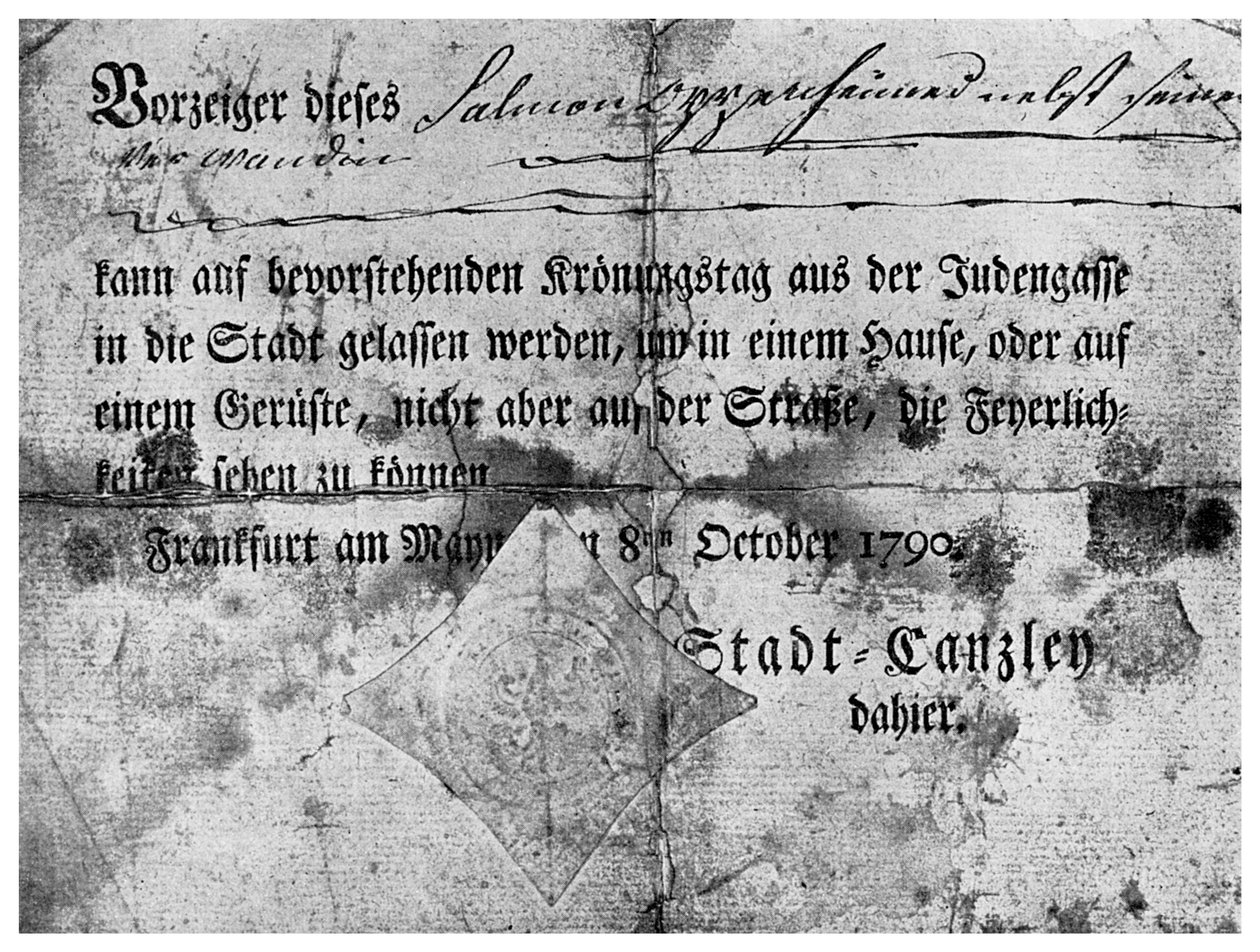 Vorzeiger dieses Salmon Oppenheimer nebst seiner
Verwandin
kann auf bevorstehenden Krönungstag aus der Judengasse
in die Stadt gelassen werden, um in einem Hause, oder auf
einem Gerüste, nicht aber auf der Straße, die Feyerlich⸗
keiten sehen zu können
Frankfurt am Mayn den 8ten October 1790.
Stadt⸗Canzley
dahier.